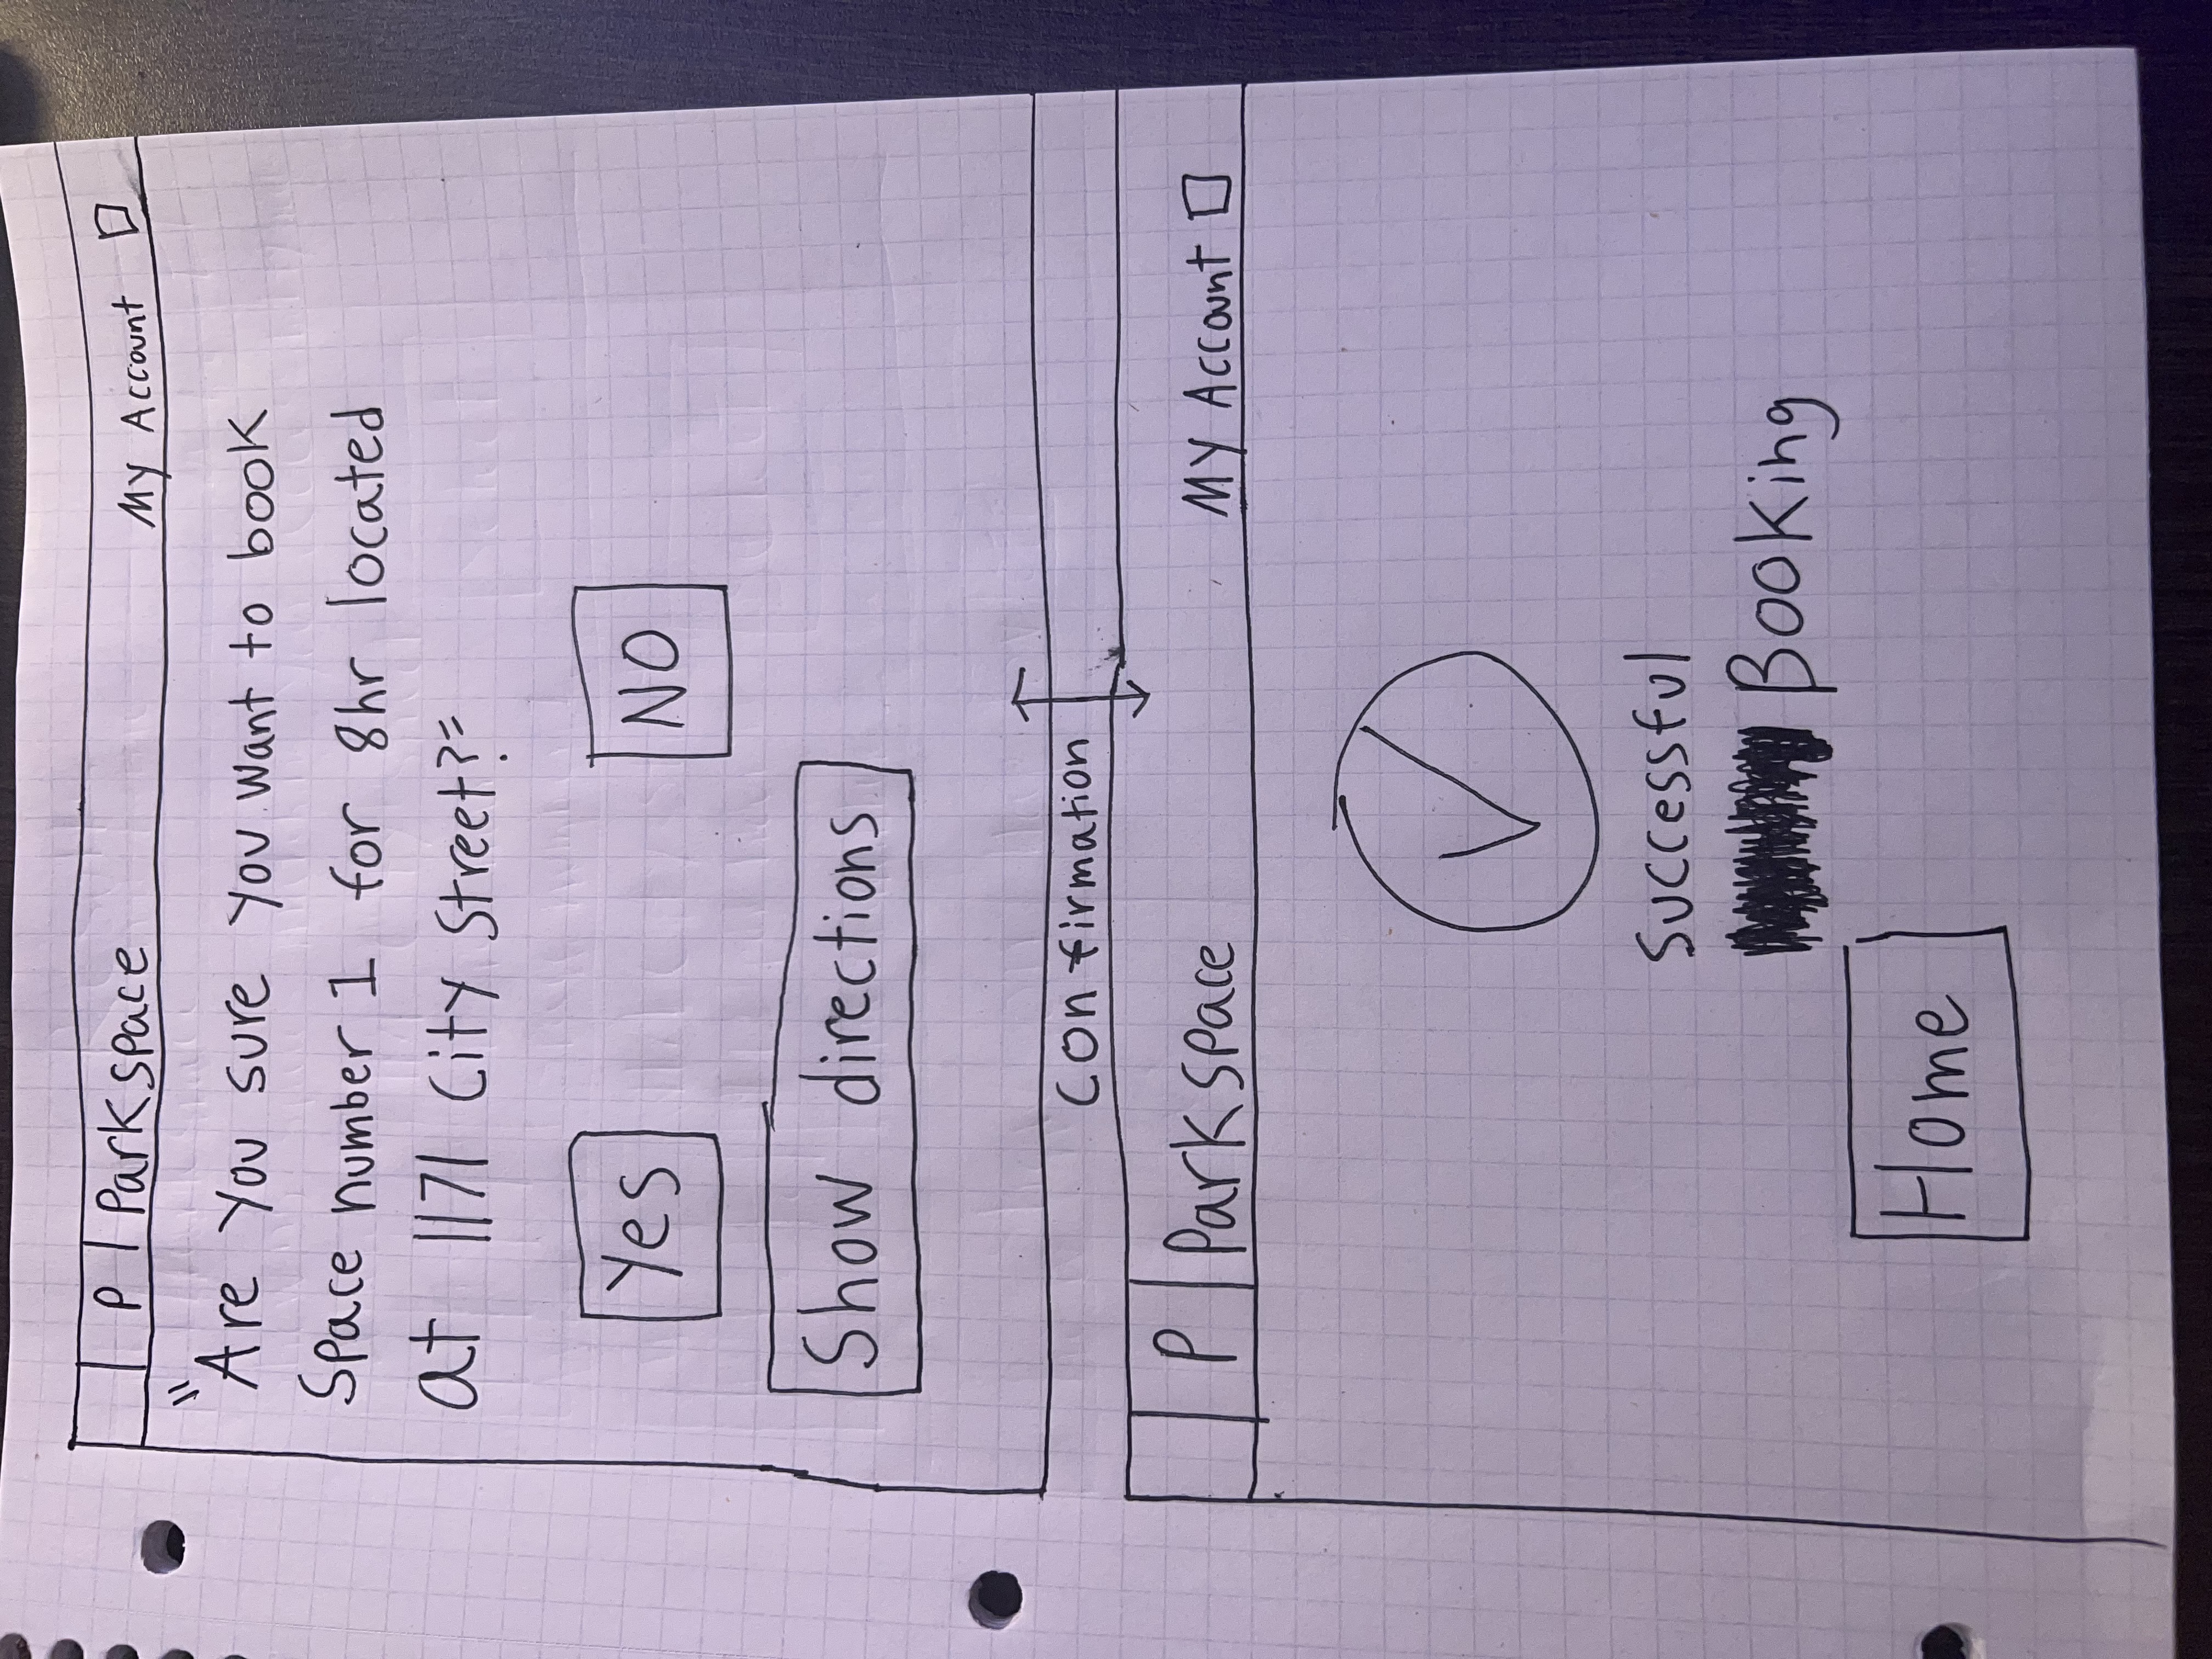 P Parkspace My Account
"Are you sure you want to book
Space number 1 for 8hr located
at 1171 City Street?"
Yes NO
Show directions
Confirmation
P Parkspace My Account
Successful
Booking
Home